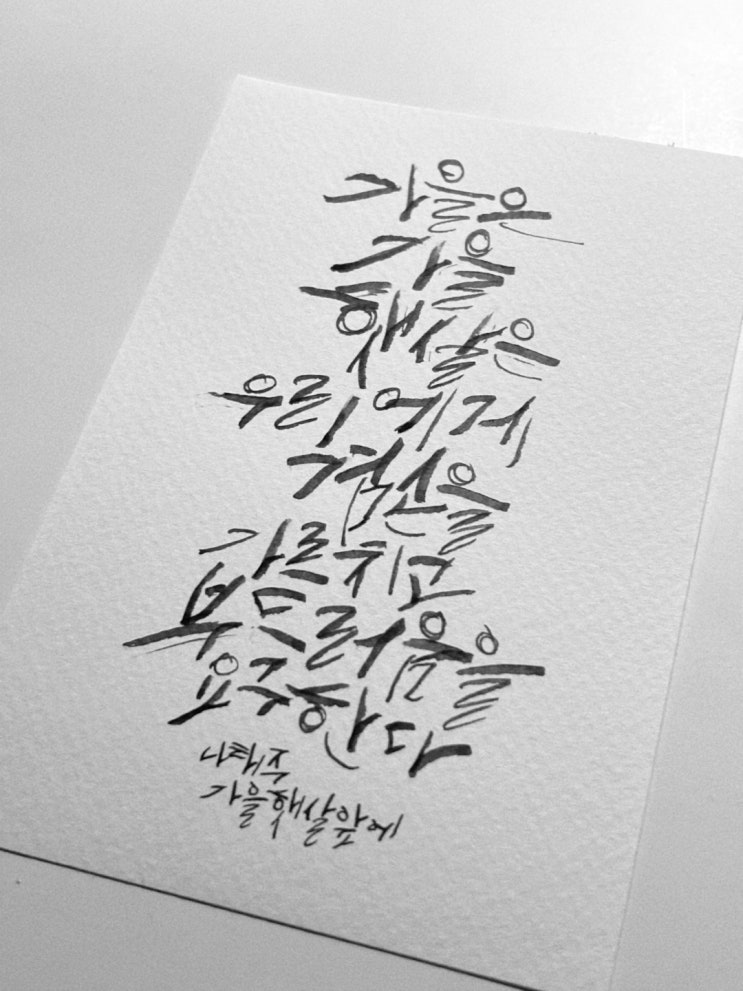 가을은
가을
햇살은
우리에게
겸손을
가르치고
부드러움을
요구한다
나태주
가을햇살앞에